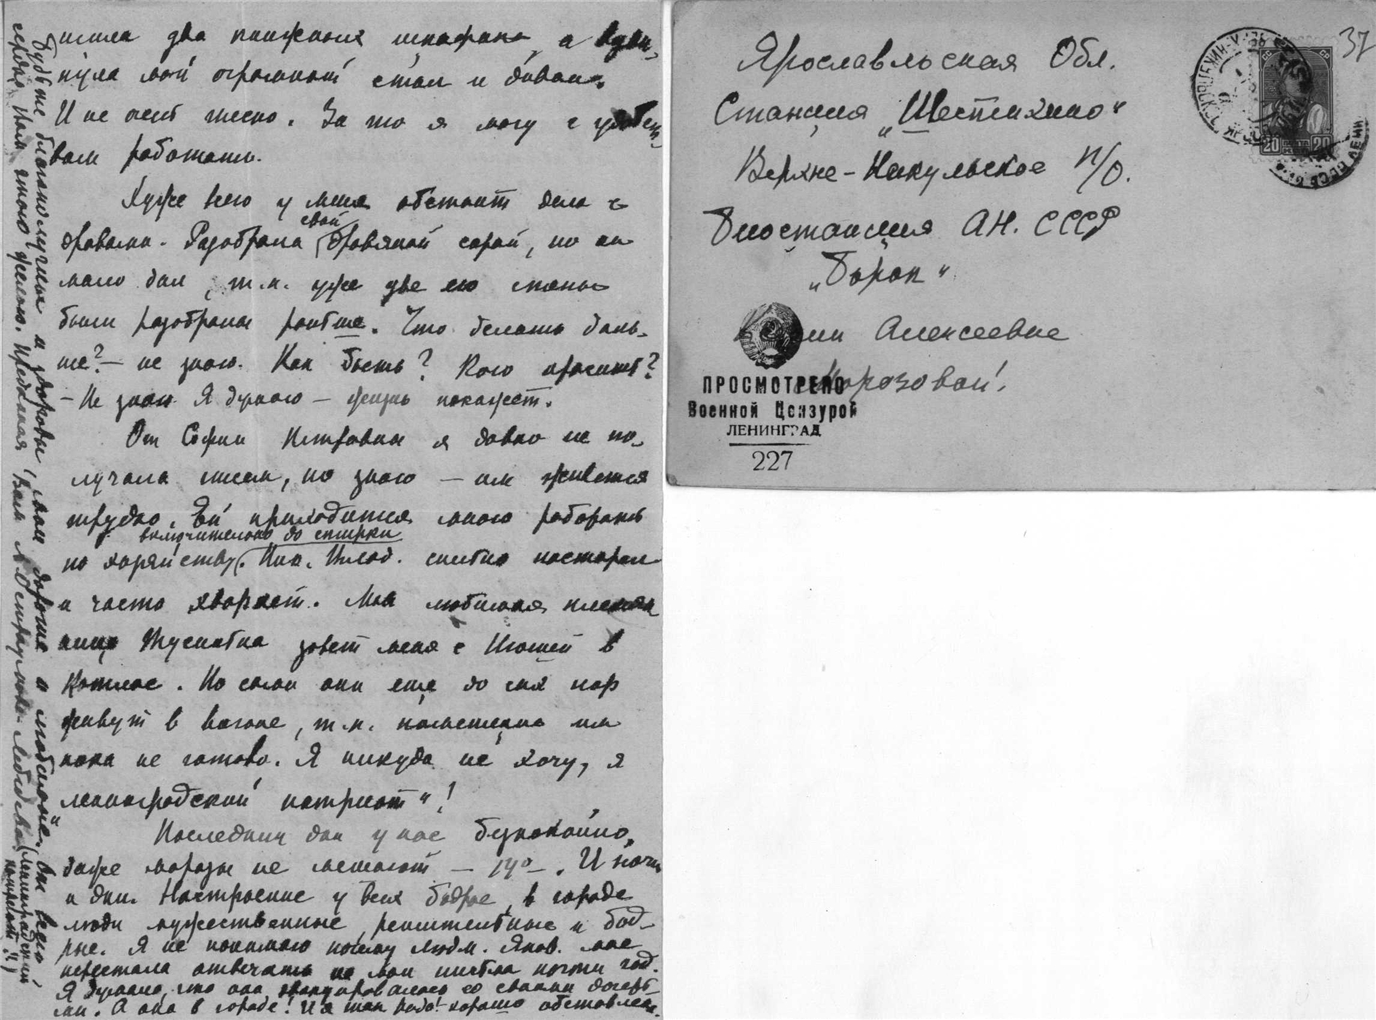 два книжных шкафика, а вдви-
нула мой огромный стол и диван.
И не очень тесно. За то я могу с
работать.
Хуже всего у меня обстоит дело с
дровами. Разобрала свой дровяной сарай, но он
мало дал, т.к. уже две его стены
были разобраны раньше. Что делать даль-
ше? — не знаю. Как быть? Кого просить?
— Не знаю. Я думаю — жизнь покажет.
От Софии Петровны я давно не по-
лучала писем, но знаю — им живется
трудно. Ей приходится много работать
по хозяйству, включительно до стирки. Ник. сильно постарел
и часто хворает. Моя любимая племян
ница зовет меня с в
Котлас. Но сами они еще до сих пор
живут в вагоне, т.к. помещение им
пока не готово. Я никуда не хочу, я
ленинградский патриот"!
Последние дни у нас беспокойно,
даже морозы не мешают — . И ночи
и дни. Настроение у всех бодрое, в городе
люди мужественные, решительные и бод-
рые. Я не понимаю почему Людм. Яков. мне
перестала отвечать на мои письма почти год.
Я думала, что она эвакуировалась со своими дочерь-
ми. А она в городе! И я так рада! хорошо обставлена.
Будьте благополучны и здоровы, мои дорогие и любимые. От всего
сердца Вам этого желаю. Преданная Вам А. Остроумова-Лебедева (ленинградский
патриот!!)
Ярославльская Обл.
Станция „Шестихино"
Верхне-Никульское п/о.
Биостанция АН. СССР
„Борок"
Алексеевне
Морозовой.
37
20 20
ПРОСМОТРЕНО
Военной Цензурой
ЛЕНИНГРАД
227